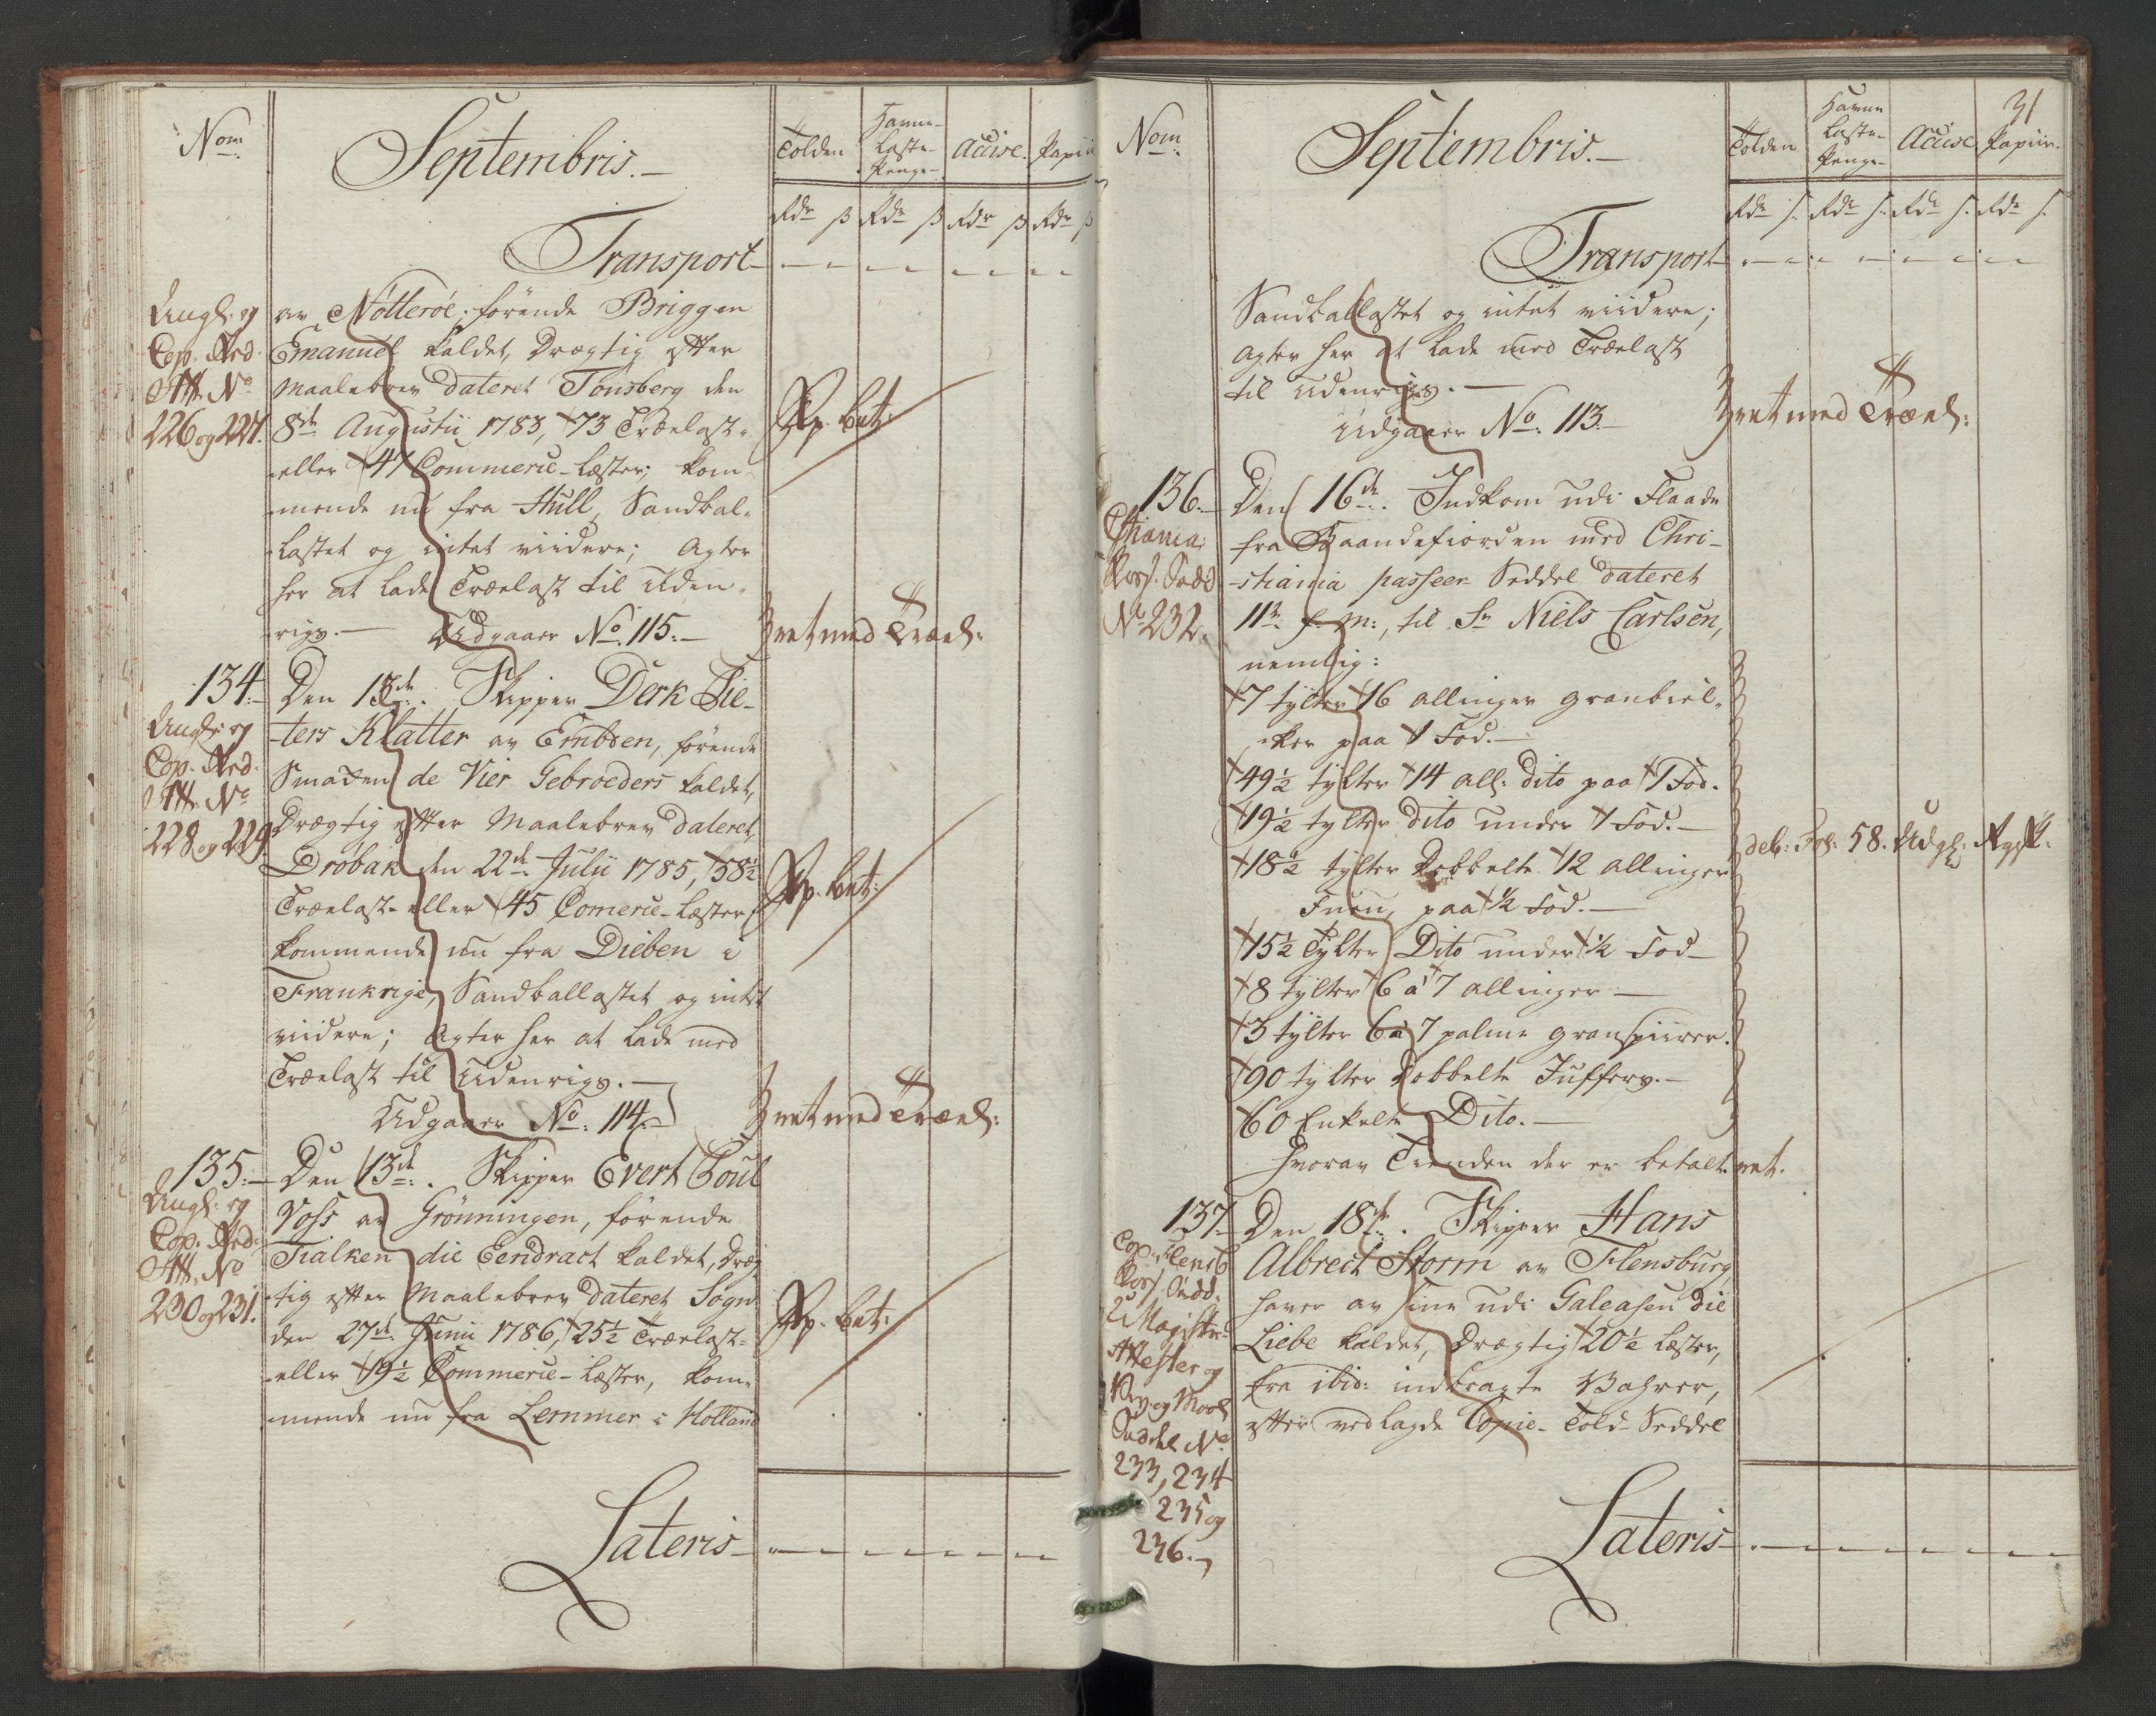 Nom
Septembris.
Tolden
Havne-
Laste-
Penge
Accise.
Papiir
Rdr ß Rdr ß Rdr ß Rdr ß
Transport
Angl: og
Cop. Ard.
Att. No
226 og 227.
av Nötteröe; förende Briggen
Emanuel kaldet, Drægtig efter
Maalebrev dateret Tönsberg den
8de Augustii 1783, 73 Trælast-
eller 47 Commerce-Læster; kom
mende nu fra Hull, Sandbal-
lastet og intet viidere; Agter
her at lade Trælast til Uden-
rigs. — Udgaaer No. 115. —
Pp. bet:
Bret med Træel:
134. —
Angl: og
Cop. Ard.
Att. No
228 og 229
Den 13de. Skipper Derk Pie-
ters Klatter av Embden, förende
Smaken de Vier Gebroeders kaldet,
Drægtig efter Maalebrev dateret
Dröbak den 22de Julii 1785, 58½
Trælast- eller 45 Comerce-Læster
kommende nu fra Dieben i
Frankrige, Sandballastet og intet
viidere; Agter her at lade med
Trælast til Udenrigs. —
Udgaaer No. 114. —
Pp. bet:
Bret med Træel:
135. —
Angl: og
Cop. Ard:
Att. No
230 og 231.
Den 13de. Skipper Evert Poul
Voss av Grönningen, förende
Tialken die Eendract kaldet, Dræg
tig efter Maalebrev dateret Sogn
den 27de Junii 1786, 25½ Trælast-
eller 19½ Commerce-Læster, kom-
mende nu fra Lemmer i Holland
Pp. bet:
Lateris
31
Nom
Septembris. —
Tolden
Havne
Laste-
Penge-
Accise
Papiir.
Rdr s. Rdr s. Rdr s. Rdr s.
Transport
Sandballastet og intet viidere;
Agter her at lade med Trælast
til Udenrigs. —
Udgaaer No. 113. —
Bret med Træel:
136. —
Chania:
Pass. Sedd
No 232.
Den 16de. Indkom udi Flaade
fra Sandefiorden med Chri-
stiania passeer Seddel dateret
11te f. M:, til Sr Niels Carlsen,
nemlig:
7 tylter 16 allinger granbiel-
ker paa 1 Fod. —
49½ tylter 14 all: dito paa 1 Fod.
19½ tylter dito under 1 Fod. —
18½ tylter Dobbelte 12 allinger
Furu, paa ½ Fod. —
15½ Tylter Dito under ½ Fod —
8 tylter 6 a 7 allinger —
3 tylter 6 a 7 palme granspiirer.
90 tylter Dobbelte Juffers. —
60 Enkelte Dito. —
Hvorav Tienden der er betalt. net.
deb: Fol: 58. Udg:
137.
Cop. Flensb
Pass. Sedd.
2 Magistr.
Attester og
Seddel No
233, 234
235 og
236.
Den 18de. Skipper Hans
Albrect Storm av Flensburg,
haver av sine udi Galeasen die
Liebe kaldet, Drægtig 20½ Læster,
fra ibid: indbragte Vahrer,
efter vedlagde Copie-Told-Seddel
Lateris